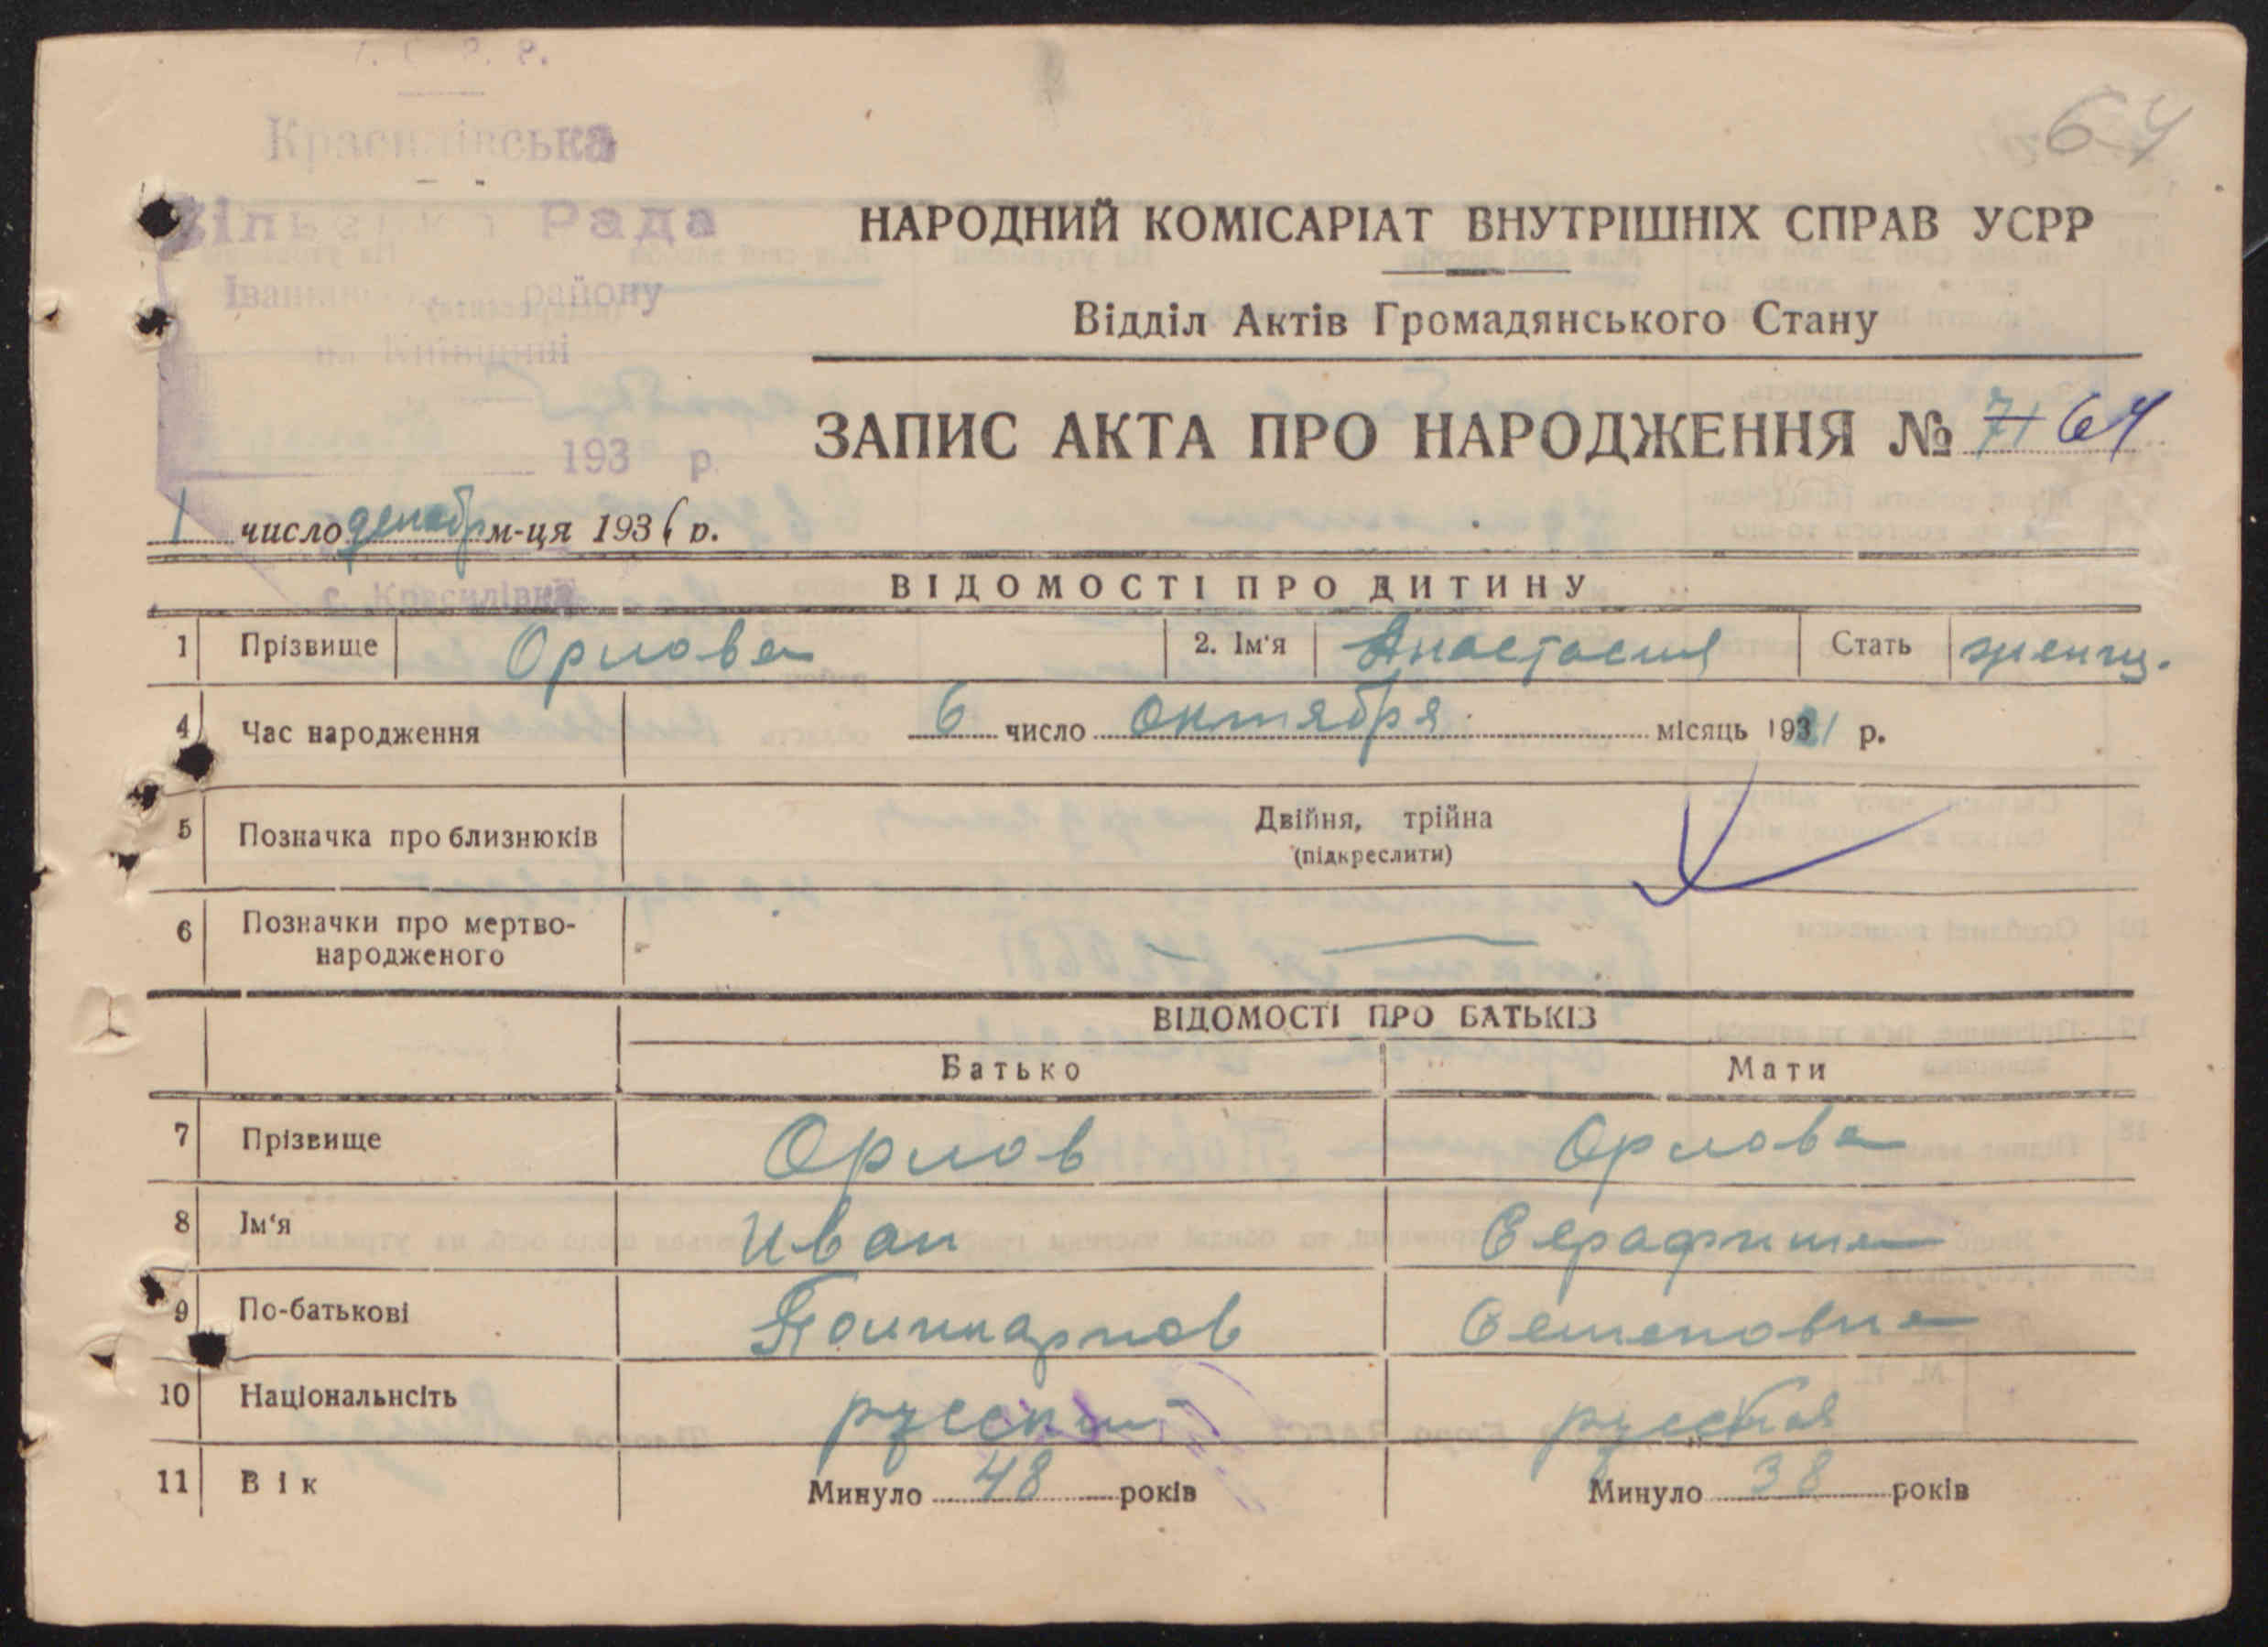 64
Красилівська
Рада
району
на Київщині
193 р.
с. Красилівка
НАРОДНИЙ КОМІСАРІАТ ВНУТРІШНІХ СПРАВ УСРР
Відділ Актів Громадянського Стану
ЗАПИС АКТА ПРО НАРОДЖЕННЯ № 71 64
1 число декабр м-ця 1936 р.
ВІДОМОСТІ ПРО ДИТИНУ
1 Прізвище Орлова 2. Ім'я Анастасия Стать женщ.
4 Час народження 6 число октября місяць 1921 р.
5 Позначка про близнюків Двійня, трійна
(підкреслити)
6 Позначки про мертво-
народженого
ВІДОМОСТІ ПРО БАТЬКІВ
Батько Мати
7 Прізвище Орлов Орлова
8 Ім'я Иван Серафима
9 По-батькові Поликарпов Семеновна
10 Національнсіть русский русская
11 Вік Минуло 48 років Минуло 38 років